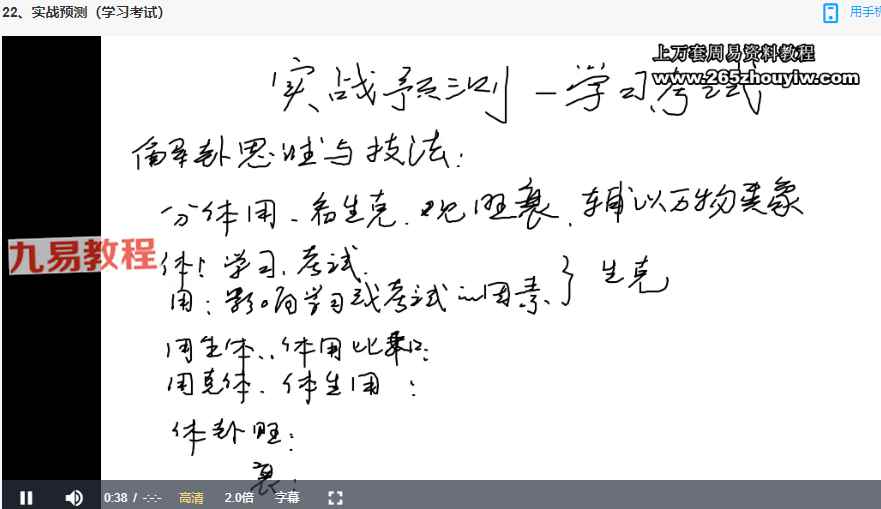 22、实战预测（学习考试）
用手机
上万套周易资料教程
www.265zhouyiw.com
实战预测—学习考试
解卦思维与技法：
分体用、看生克、观旺衰、辅以万物类象
九易教程
体：学习、考试、
生克
用：影响学习或考试的因素、
用生体、体用比和：
用克体、体生用：
体卦旺：
衰：
0:38 / -:-:-
高清
2.0倍
字幕